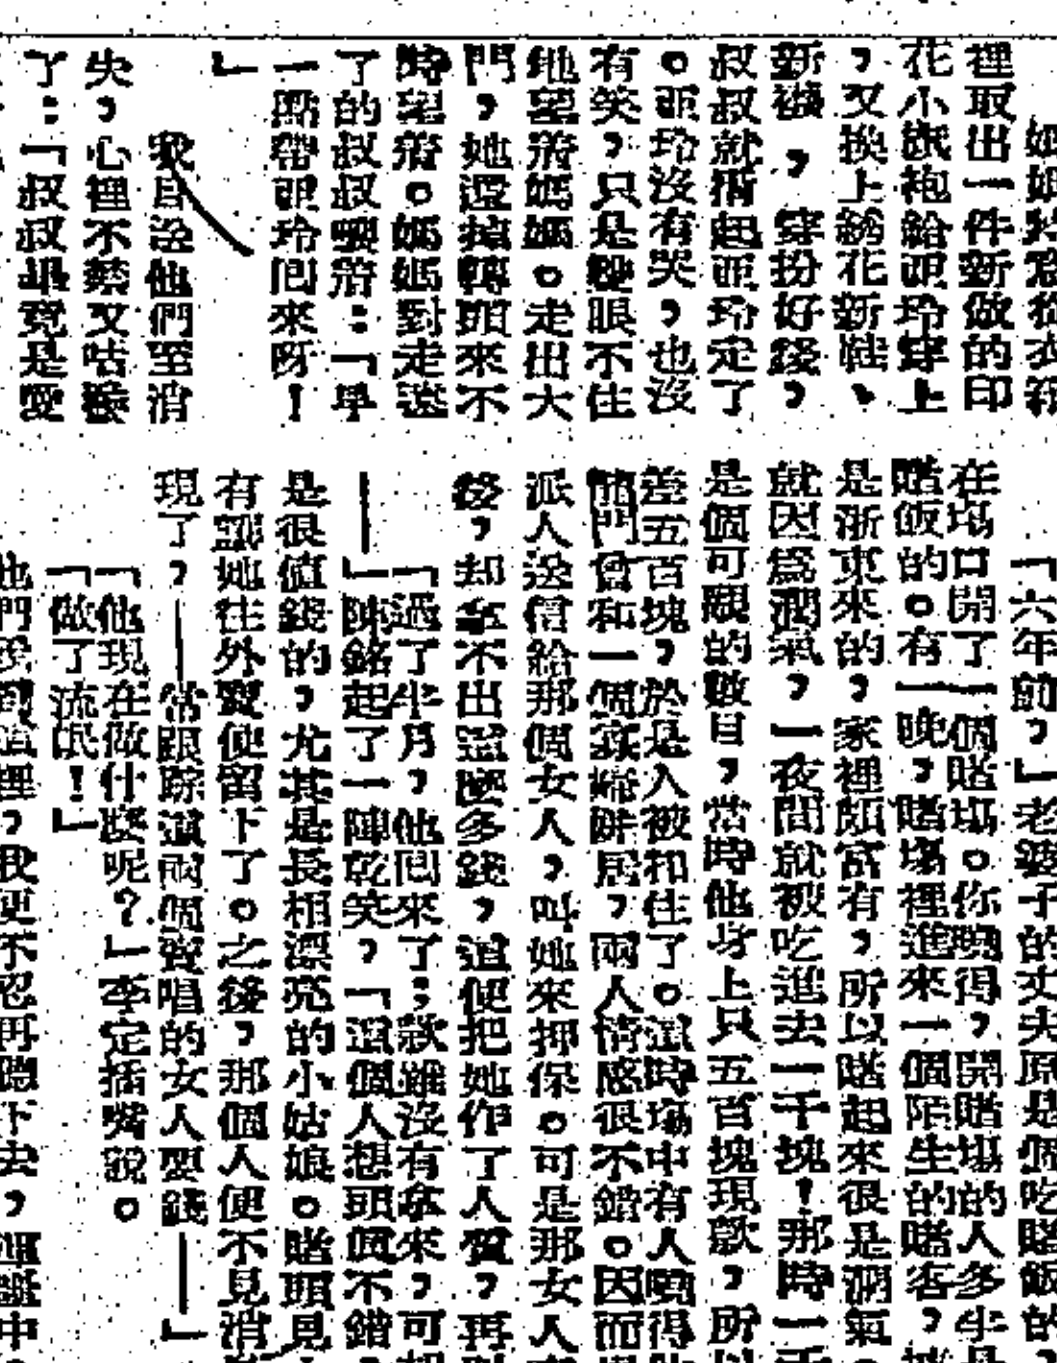 媽媽特意從衣箱
裡取出一件新做的印
花小旗袍給亞玲穿上
,又換上綉花新鞋、
新襪,穿扮好後,
叔叔就揹起亞玲走了
。亞玲沒有哭,也沒
有笑,只是雙眼不住
地望着媽媽。走出大
門,她還掉轉頭來不
時望着。媽媽對走遠
了的叔叔喚着:「早
一點帶亞玲回來呀!
」
我目送他們至消
失,心裡不禁又咕噥
了:「叔叔畢竟是愛
「六年前,」老婆子的丈夫原是個吃賭飯的,
在場口開了一個賭場。你曉得,開賭場的人多半是
賭飯的。有一晚,賭場裡進來一個陌生的賭客,
是浙東來的,家裡頗富有,所以賭起來很是濶氣。
就因爲濶氣,一夜間就被吃進去一千塊!那時一千
是個可觀的數目,當時他身上只五百塊現款,所以
差五百塊,於是人被扣住了。這時場中有人曉得他
簡門曾和一個寡婦姘居,兩人情感很不錯。因而
派人送信給那個女人,叫她來押保。可是那女人
後,却拿不出這麼多錢,這便把她作了人質,再
「過了半月,他回來了;款雖沒有拿來,可
——」陳銘起了一陣乾笑,「這個人想頭倒不錯,
是很値錢的,尤其是長相漂亮的小姑娘。賭頭見
有認她往外賣便留下了。之後,那個人便不見消
現了,——常跟踪這兩個賣唱的女人要錢——」
「他現在做什麽呢?」李定插嘴說。
「做了流氓!」
他們說到這裡,我更不忍再聽下去,